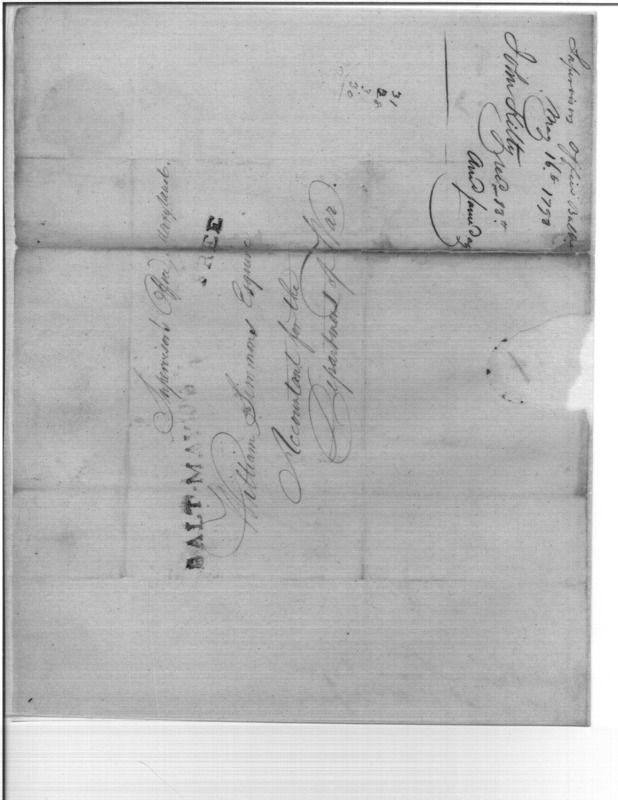 Supervisors Office Balt
May 16th 1798
John Kilty
Recd 18th
And same day
31
28
Supervisor's Office Maryland.
FREE
BALT-MAY
William Simmons Esquire
Accountant for the
Department of War.